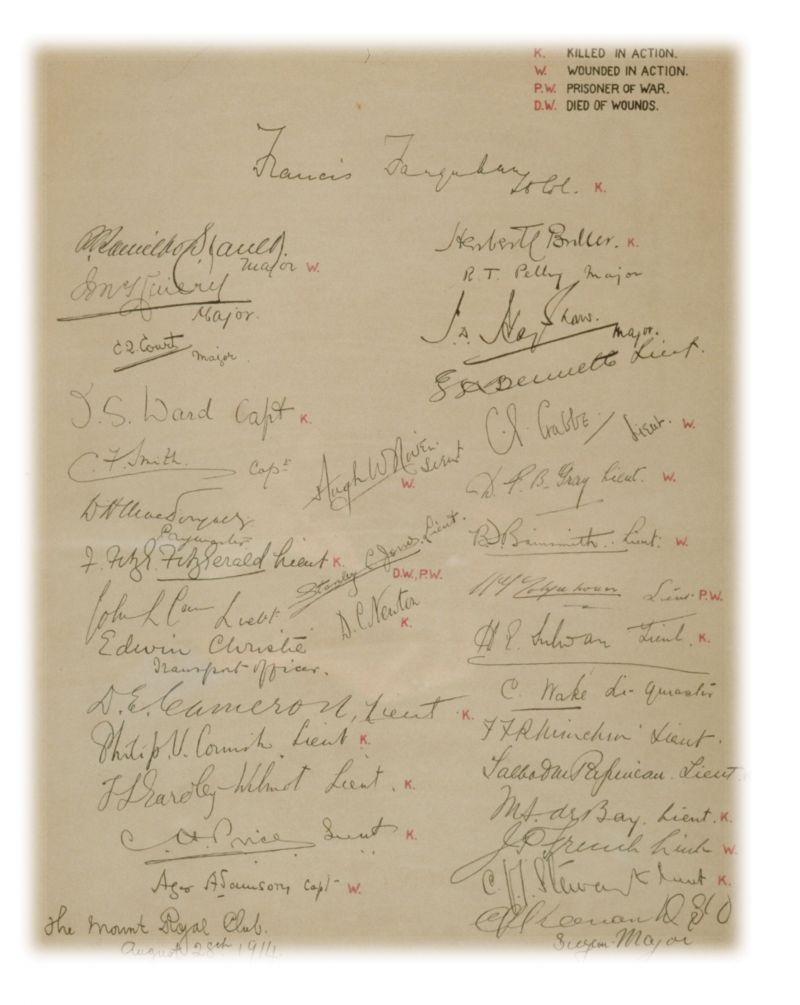 K. KILLED IN ACTION.
W. WOUNDED IN ACTION.
P.W. PRISONER OF WAR.
D.W. DIED OF WOUNDS.
Francis Farquhar
Lt Col. K.
A Hamilton Gault.
Major W.
Major.
C Q. Court Major
Herbert C Buller. K.
R. T. Pelly Major
Major.
Bennett Lieut.
D. S. Ward Capt K.
C. F. Smith. Capt
Hugh W Niven.
Lieut
W.
C. A. Crabbe Lieut. W.
D. F. B. Gray Lieut. W.
Paymaster
F. Fitz G. FitzGerald Lieut K.
Stanley C Jones. Lieut.
D.W, P.W.
Lieut. W.
John L Carr Lieut
D. C. Newton
K.
Lieut P.W.
Edwin Christie
Transport Officer.
H. E. Sulivan Lieut. K.
D. E. Cameron, Lieut K.
C. Wake
Philip V. Cornish Lieut K.
F F R Minchin Lieut.
F L Eardley-Wilmot Lieut. K.
Talbot M Papineau. Lieut
C. H. Price Lieut K.
M S. de Bay. Lieut. K.
J P French Lieut W
Agar Adamson, Capt W.
C. J. T. Stewart Lieut K.
C B Keenan D S O
Surgeon-Major
The Mount Royal Club.
August 28th 1914.